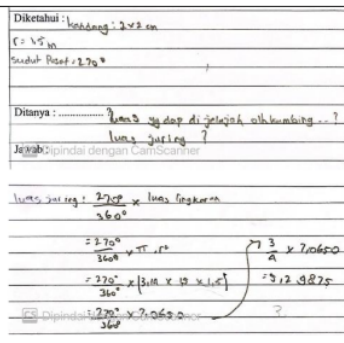 Diketahui : kandang : 2x2 cm
r = 1,5 m
Sudut Pusat = 270°
Ditanya : .................. ?
Luas yg dap di jelajah olh kambing .. ?
luas juring ?
Jawab :
Dipindai dengan CamScanner
luas juring : 270° / 360° x luas lingkaran
= 270° / 360° x π . r²
= 270° / 360° x (3,14 x 1,5 x 1,5)
= 270° / 360° x 7,0650
3 / 4 x 7,0650
= 5,29875
CS Dipindai